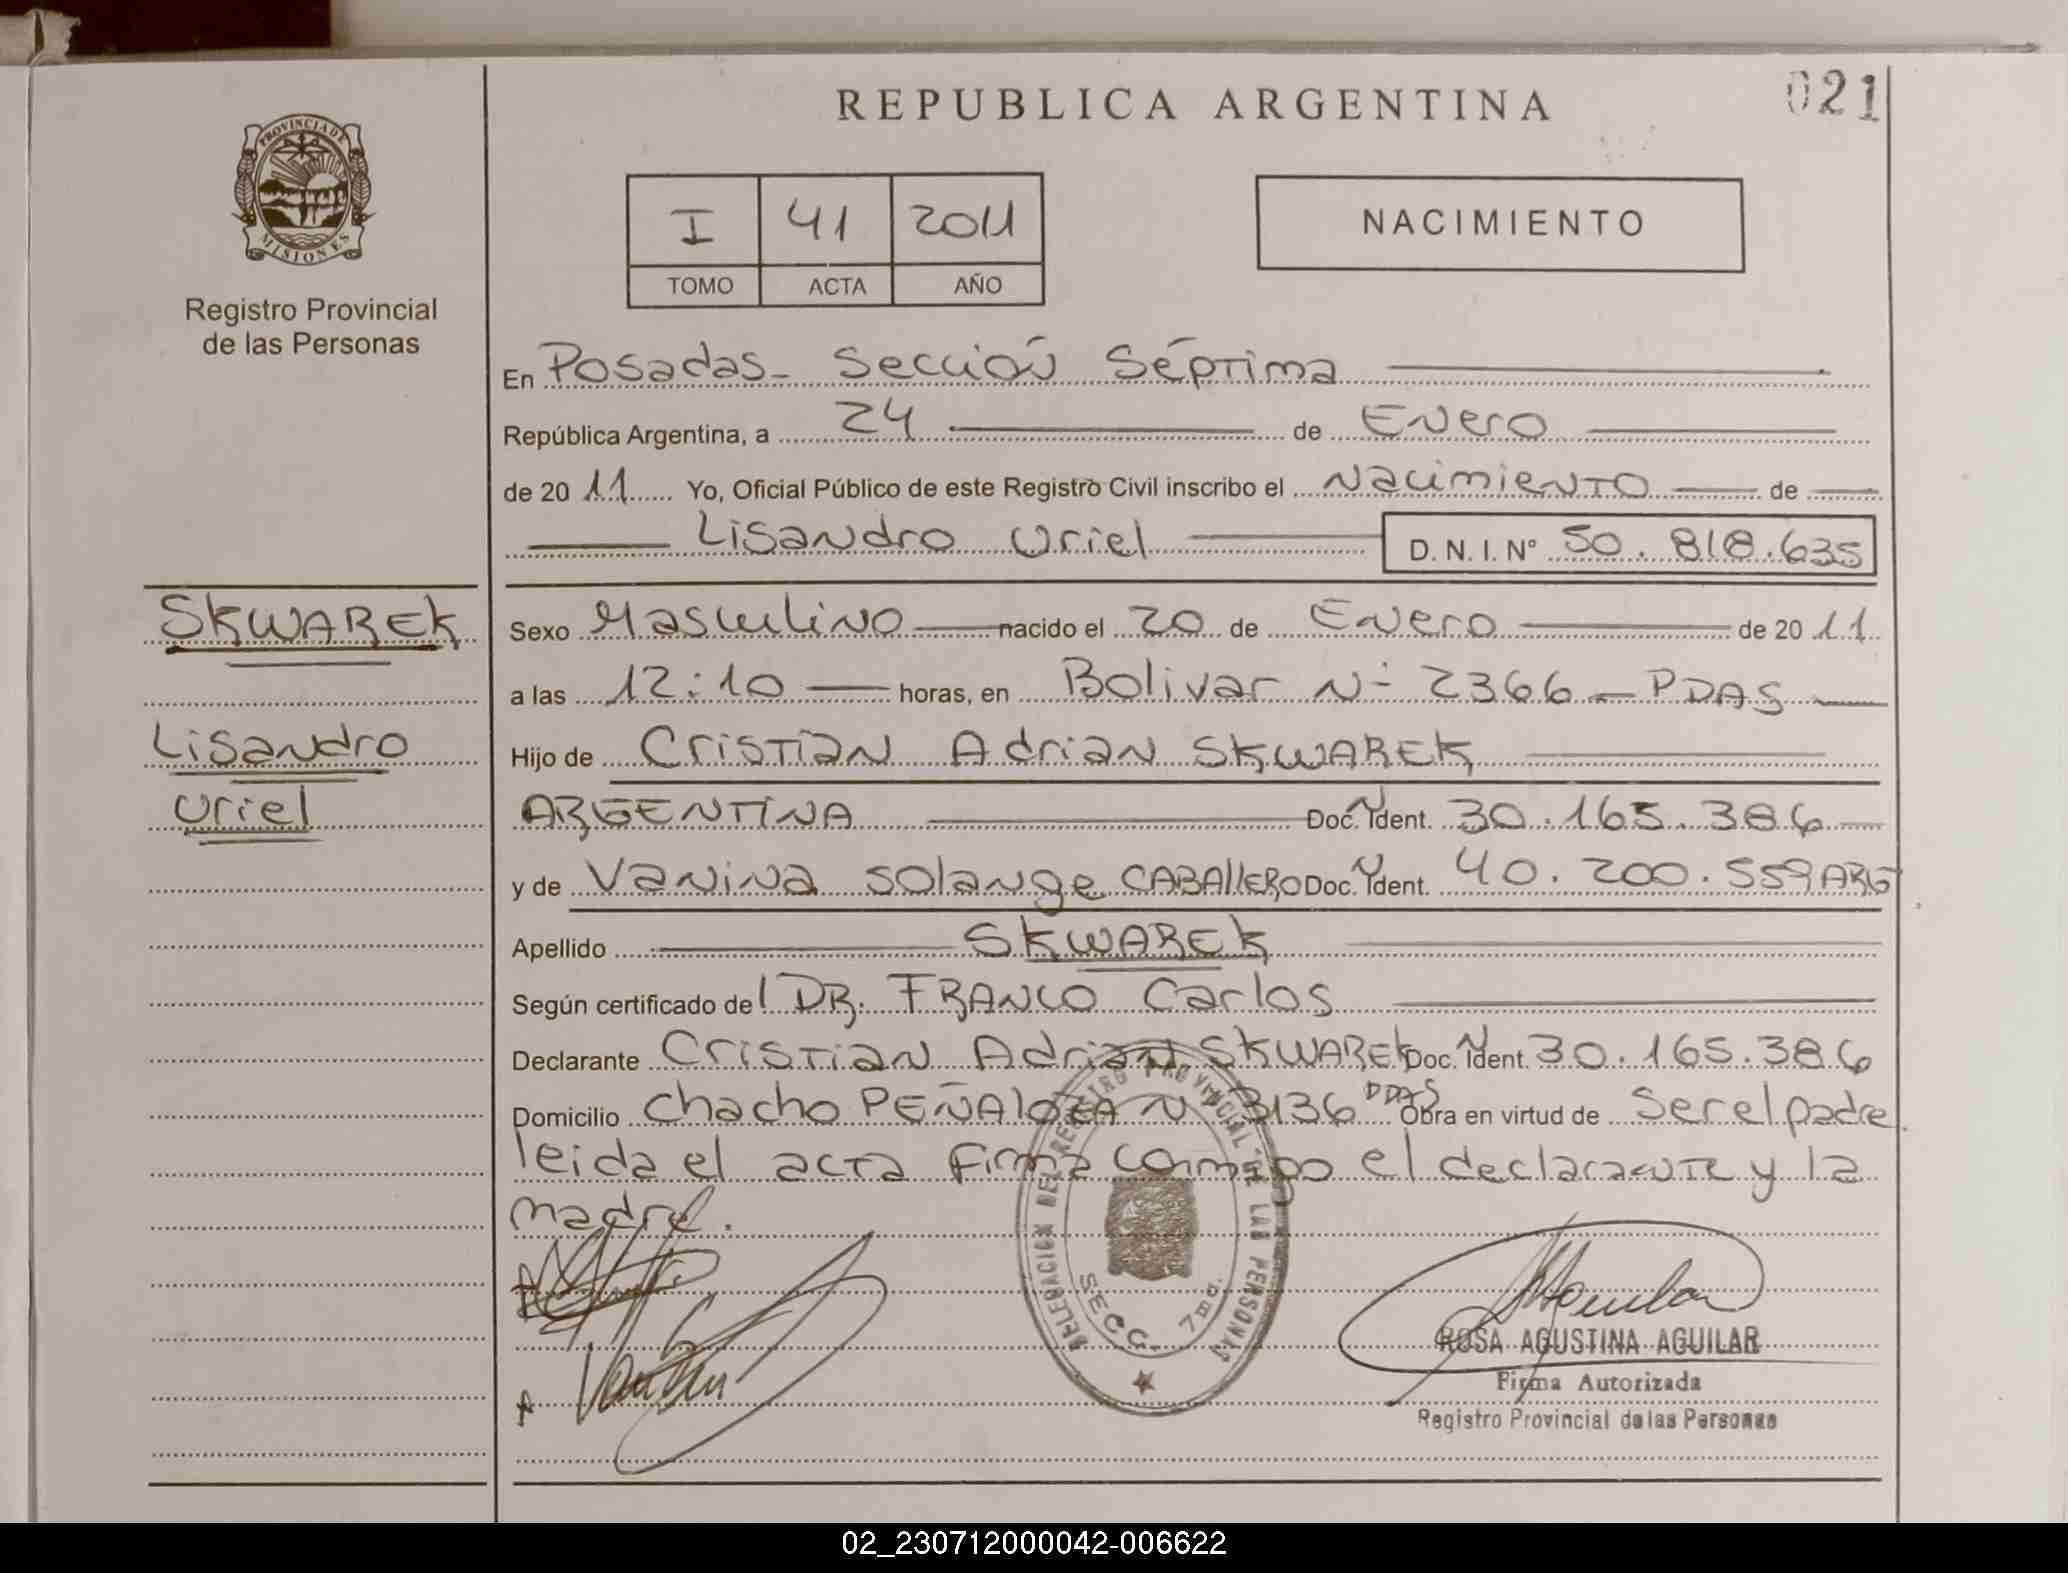 REPUBLICA ARGENTINA
021
PROVINCIA DE
MISIONES
Registro Provincial
de las Personas
I 41 2011
TOMO ACTA AÑO
NACIMIENTO
En Posadas - Sección Séptima
República Argentina, a 24 de Enero
de 2011 Yo, Oficial Público de este Registro Civil inscribo el Nacimiento de
Lisandro Uriel D. N. I. Nº 50.818.635
SKWAREK
Lisandro
Uriel
Sexo Masculino nacido el 20 de Enero de 2011
a las 12:10 horas, en Bolivar Nº 2366 - PDAS
Hijo de Cristian Adrian SKWAREK
ARGENTINA Doc. N Ident. 30.165.386
y de Vanina Solange CABAllERO Doc. N Ident. 40.200.559 ARG
Apellido SKWAREK
Según certificado del DR. FRANCO Carlos
Declarante Cristian Adrian SKWAREK Doc. N Ident. 30.165.386
Domicilio Chacho PEÑAlOZA N 3136 PDAS Obra en virtud de Ser el padre
leida el acta firma conmigo el declarante y la
madre.
DELEGACION DEL REGISTRO PROVINCIAL DE LAS PERSONAS
SECC. 7ma.
ROSA AGUSTINA AGUILAR
Firma Autorizada
Registro Provincial de las Personas
02_230712000042-006622